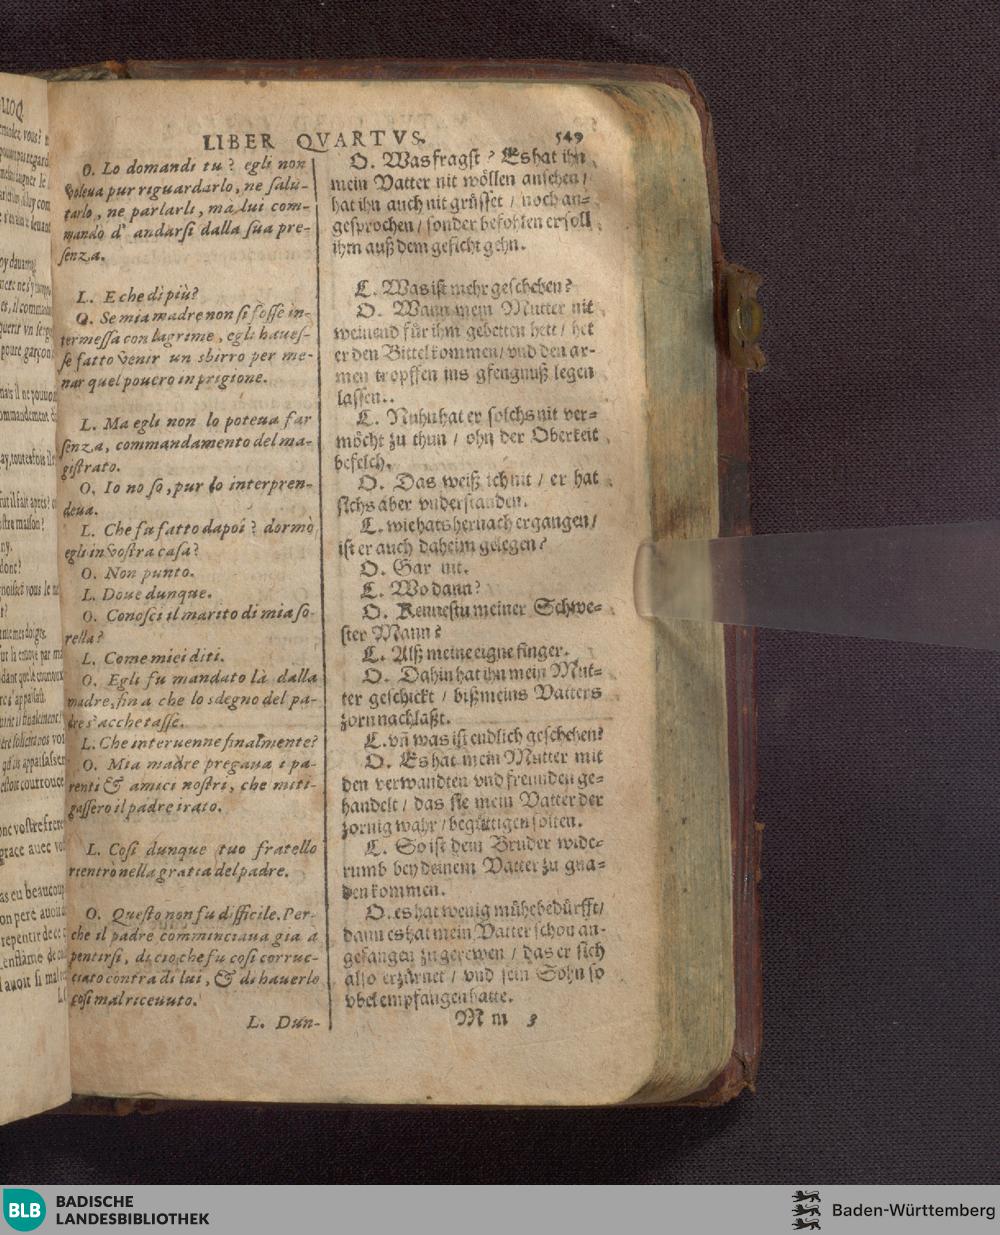 LIBER QVARTVS. 549
O. Lo domandi tu? egli non
voleua pur riguardarlo, ne salu-
tarlo, ne parlarli, ma lui com-
mando d' andarsi dalla sua pre-
senza.
L. E che di più?
O. Se mia madre non si fosse in-
termessa con lagrime, egli haues-
se fatto venir un sbirro per me-
nar quel pouero in prigione.
L. Ma egli non lo poteua far
senza, commandamento del ma-
gistrato.
O. Io no so, pur lo interpren-
deua.
L. Che fu fatto dapoi? dormò
egli in vostra casa?
O. Non punto.
L. Doue dunque.
O. Conosci il marito di mia so-
rella?
L. Come miei diti.
O. Egli fu mandato là dalla
madre, fin a che lo sdegno del pa-
dre s'acchetasse.
L. Che interuenne finalmente?
O. Mia madre pregaua i pa-
renti & amici nostri, che miti-
gassero il padre irato.
L. Cosi dunque tuo fratello
rientrò nella gratia del padre.
O. Questo non fu difficile. Per-
che il padre comminciaua gia a
pentirsi, di cio che fu cosi corruc-
ciato contra di lui, & di hauerlo
cosi mal riceuuto.
L. Dun-
O. Was fragst? Es hat ihn
mein Vatter nit wöllen ansehen/
hat ihn auch nit grüsset / noch an-
gesprochen / sonder befohlen er soll
ihm auß dem gesicht gehn.
L. Was ist mehr geschehen?
O. Wann mein Mutter nit
weinend für ihm gebetten hett / het
er den Bittel kommen/ vnd den ar-
men tropffen ins gfengnuß legen
lassen.
L. Nuhn hat er solchs nit ver-
möcht zu thun / ohn der Oberkeit
befelch.
O. Das weiß ich nit / er hat
sichs aber vnderstanden.
L. wie hats hernach ergangen/
ist er auch daheim gelegen?
O. Gar nit.
L. Wo dann?
O. Kennestu meiner Schwe-
ster Mann?
L. Alß meine eigne finger.
O. Dahin hat ihn mein Mut-
ter geschickt / biß meins Vatters
zorn nachlaßt.
L. vñ was ist endlich geschehen?
O. Es hat mein Mutter mit
den verwandten vnd freunden ge-
handelt / das sie mein Vatter der
zornig wahr / begüttigen solten.
L. So ist dem Bruder wide-
rumb bey deinem Vatter zu gna-
den kommen.
O. es hat wenig mühe bedürfft/
dann es hat mein Vatter schon an-
gefangen zu gerewen / das er sich
also erzürnet / vnd sein Sohn so
vbel empfangen hatte.
M m 3
BLB BADISCHE
LANDESBIBLIOTHEK
Baden-Württemberg